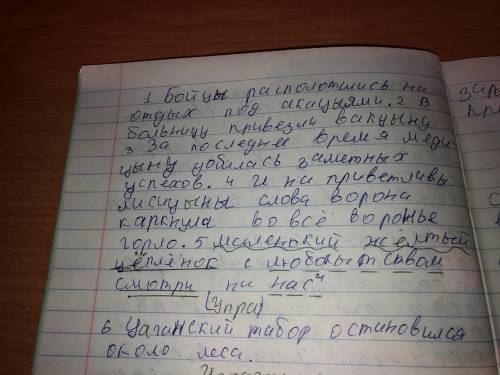 1 Бойцы расположились на
отдых под акацыями. 2 В
больницу привезли вакцыну
3 За последнее время меди-
цыну добилась заметных
успехов. 4 И на приветливы
лисицыны слова ворона
каркнула во всё воронье
горло. 5 маленький жёлтый
цеплёнок с любопытством
смотри на нас 4
(Упра)
6 Цаганский табор остановился
около леса.